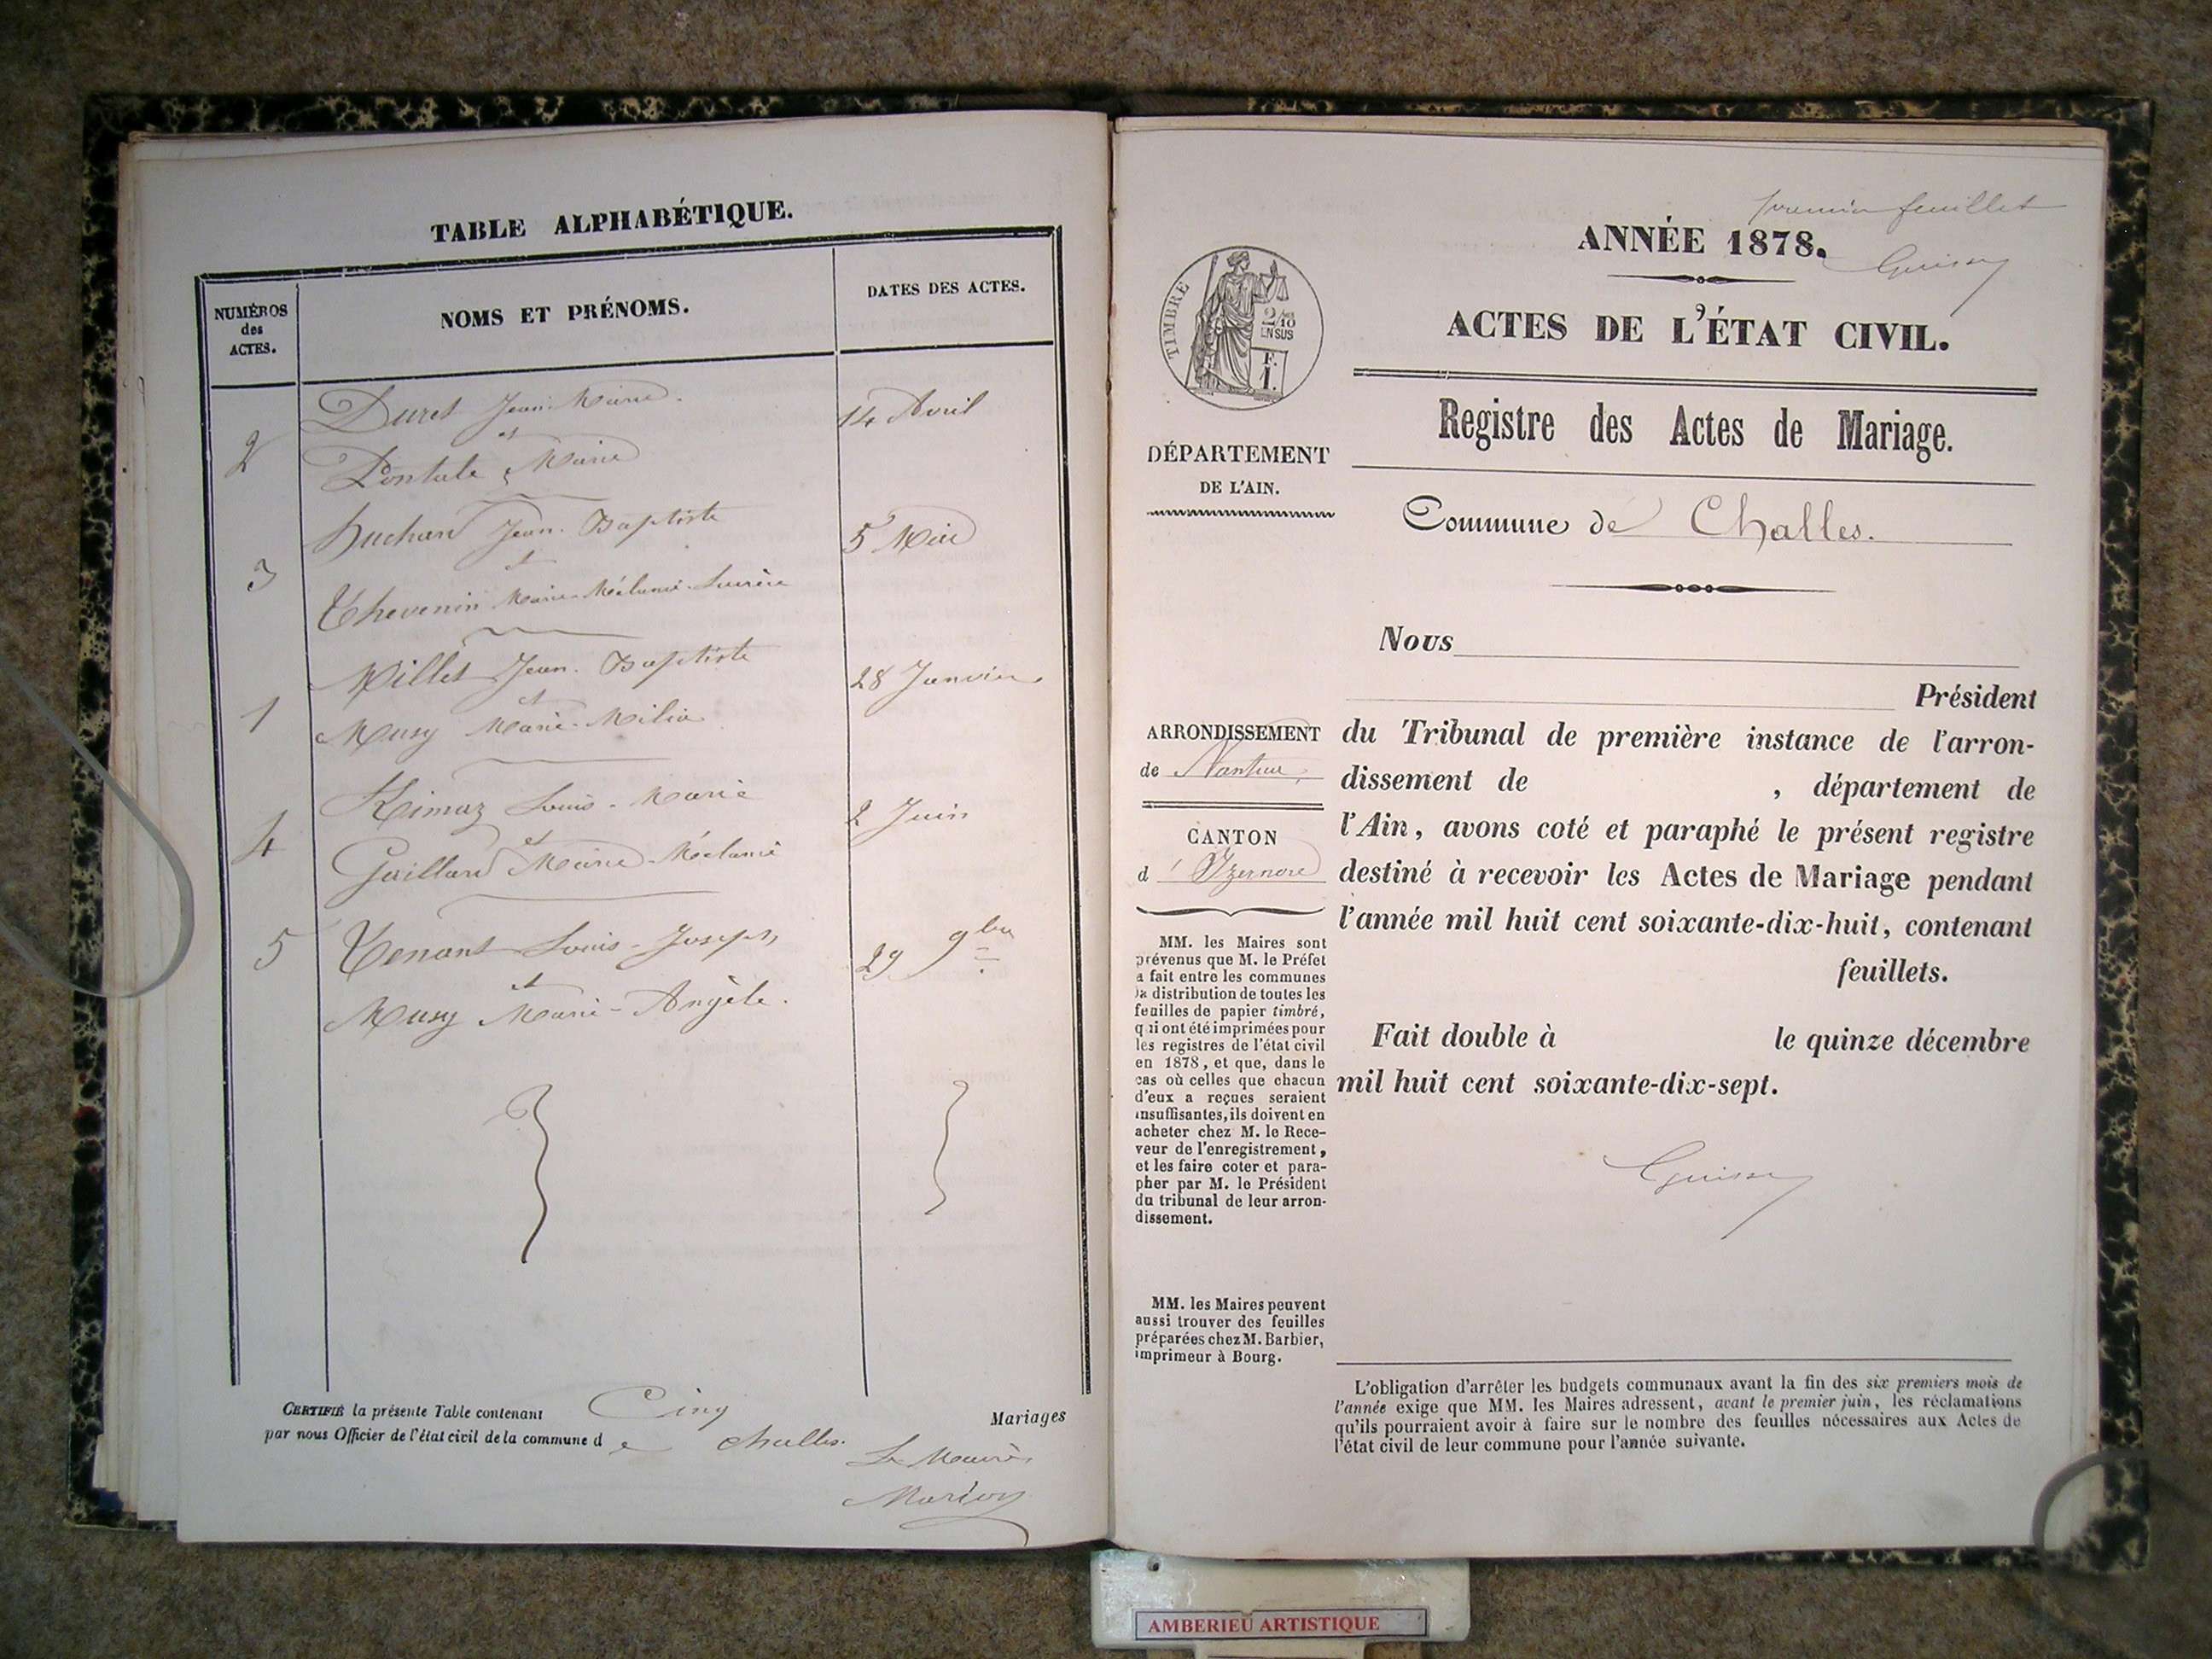 TABLE ALPHABÉTIQUE.
NUMÉROS
des
ACTES.
NOMS ET PRÉNOMS.
DATES DES ACTES.
Duret Jean Marie.
14 Avril
2
et
Marie
Jean Baptiste
5 Mai
et
3
Thevenin Marie-Mélanie
Millet Jean Baptiste
28 Janvier
et
1
Musy Marie
Louis-Marie
2 Juin
4
et
Gaillard Marie-Mélanie
5
Tenant Louis-Joseph
29 9bre
et
Musy Marie-Angèle.
CERTIFIÉ la présente Table contenant Cinq Mariages
par nous Officier de l'état civil de la commune de Challes.
Le Maire
premier feuillet
ANNÉE 1878.
ACTES DE L'ÉTAT CIVIL.
TIMBRE
2/10
EN SUS
F.
1.
Registre des Actes de Mariage.
DÉPARTEMENT
DE L'AIN.
Commune de Challes.
Nous
Président
ARRONDISSEMENT
de Nantua
CANTON
d'Izernore
du Tribunal de première instance de l'arron-
dissement de , département de
l'Ain, avons coté et paraphé le présent registre
destiné à recevoir les Actes de Mariage pendant
l'année mil huit cent soixante-dix-huit, contenant
feuillets.
Fait double à le quinze décembre
mil huit cent soixante-dix-sept.
MM. les Maires sont
prévenus que M. le Préfet
a fait entre les communes
la distribution de toutes les
feuilles de papier timbré,
qui ont été imprimées pour
les registres de l'état civil
en 1878, et que, dans le
cas où celles que chacun
d'eux a reçues seraient
insuffisantes, ils doivent en
acheter chez M. le Rece-
veur de l'enregistrement,
et les faire coter et para-
pher par M. le Président
du tribunal de leur arron-
dissement.
MM. les Maires peuvent
aussi trouver des feuilles
préparées chez M. Barbier,
imprimeur à Bourg.
L'obligation d'arrêter les budgets communaux avant la fin des six premiers mois de
l'année exige que MM. les Maires adressent, avant le premier juin, les réclamations
qu'ils pourraient avoir à faire sur le nombre des feuilles nécessaires aux Actes de
l'état civil de leur commune pour l'année suivante.
AMBERIEU ARTISTIQUE